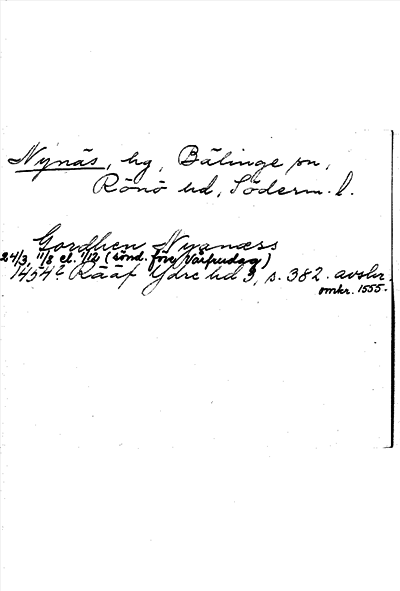 Nynäs, hg, Bälinge sn,
Rönö hd, Söderm. l.
Gordhen Nyanæss
24/3, 11/8 el. 7/12 (sönd. före Vårfrudag)
1454? Rääf Ydre hd 3, s. 382. avskr.
omkr. 1555.